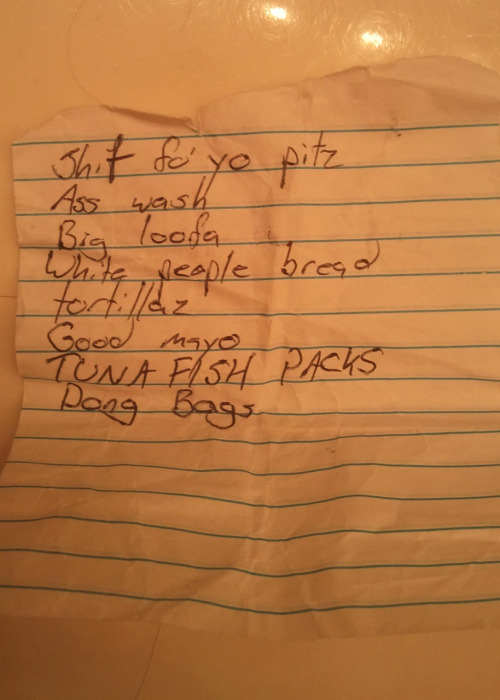 Shit fo' yo pitz
Ass wash
Big loofa
White people bread
tortillaz
Good mayo
TUNA FISH PACKS
Dong Bags